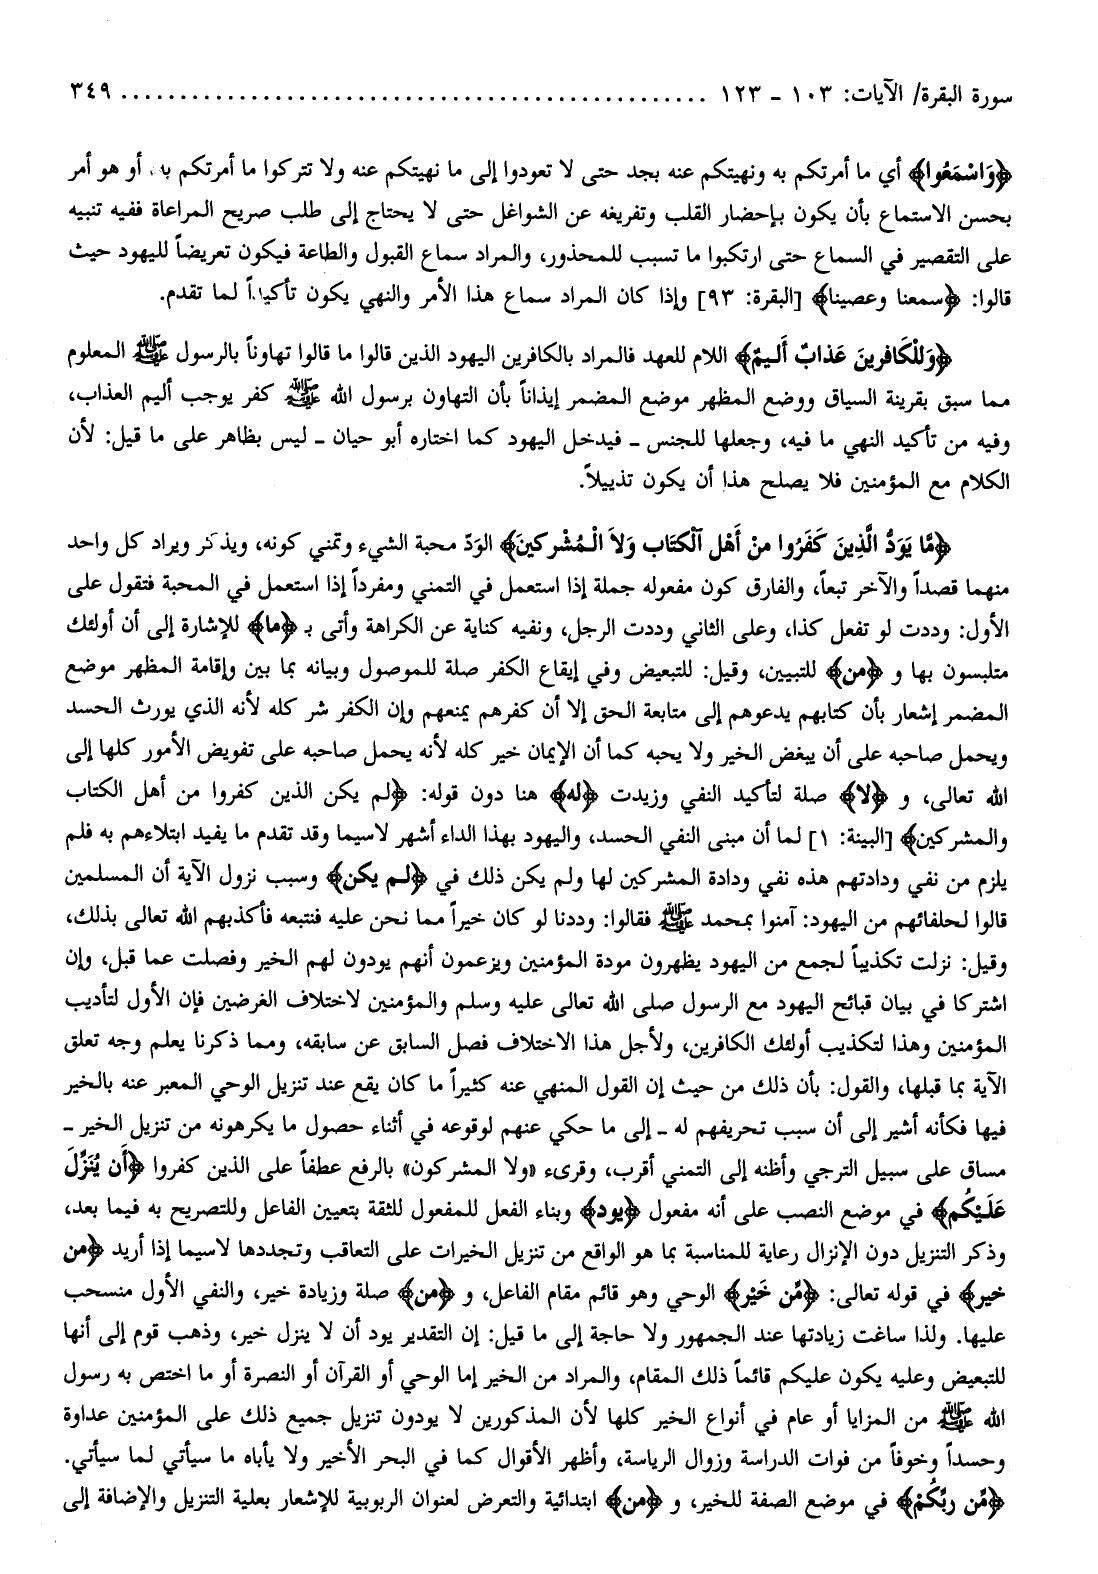 سورة البقرة/ الآيات: ١٠٣ - ١٢٣ ................................................ ٣٤٩
﴿وَاسْمَعُوا﴾ أي ما أمرتكم به ونهيتكم عنه بجد حتى لا تعودوا إلى ما نهيتكم عنه ولا تتركوا ما أمرتكم به، أو هو أمر
بحسن الاستماع بأن يكون بإحضار القلب وتفريغه عن الشواغل حتى لا يحتاج إلى طلب صريح المراعاة ففيه تنبيه
على التقصير في السماع حتى ارتكبوا ما تسبب للمحذور، والمراد سماع القبول والطاعة فيكون تعريضاً لليهود حيث
قالوا: ﴿سمعنا وعصينا﴾ [البقرة: ٩٣] وإذا كان المراد سماع هذا الأمر والنهي يكون تأكيداً لما تقدم.
﴿وَلِلْكَافِرِينَ عَذابٌ أَلِيمٌ﴾ اللام للعهد فالمراد بالكافرين اليهود الذين قالوا ما قالوا تهاوناً بالرسول ﷺ المعلوم
مما سبق بقرينة السياق ووضع المظهر موضع المضمر إيذاناً بأن التهاون برسول الله ﷺ كفر يوجب أليم العذاب،
وفيه من تأكيد النهي ما فيه، وجعلها للجنس - فيدخل اليهود كما اختاره أبو حيان - ليس بظاهر على ما قيل: لأن
الكلام مع المؤمنين فلا يصلح هذا أن يكون تذييلاً.
﴿مَّا يَوَدُّ الَّذِينَ كَفَرُوا مِنْ أَهْلِ الْكِتَابِ وَلَا الْمُشْرِكِينَ﴾ الودّ محبة الشيء وتمني كونه، ويذكر ويراد كل واحد
منهما قصداً والآخر تبعاً، والفارق كون مفعوله جملة إذا استعمل في التمني ومفرداً إذا استعمل في المحبة فتقول على
الأول: وددت لو تفعل كذا، وعلى الثاني وددت الرجل، ونفيه كناية عن الكراهة وأتى بـ ﴿ما﴾ للإشارة إلى أن أولئك
متلبسون بها و ﴿من﴾ للتبيين، وقيل: للتبعيض وفي إيقاع الكفر صلة للموصول وبيانه بما بين وإقامة المظهر موضع
المضمر إشعار بأن كتابهم يدعوهم إلى متابعة الحق إلا أن كفرهم يمنعهم وإن الكفر شر كله لأنه الذي يورث الحسد
ويحمل صاحبه على أن يبغض الخير ولا يحبه كما أن الإيمان خير كله لأنه يحمل صاحبه على تفويض الأمور كلها إلى
الله تعالى، و ﴿لا﴾ صلة لتأكيد النفي وزيدت ﴿له﴾ هنا دون قوله: ﴿لم يكن الذين كفروا من أهل الكتاب
والمشركين﴾ [البينة: ١] لما أن مبنى النفي الحسد، واليهود بهذا الداء أشهر لاسيما وقد تقدم ما يفيد ابتلاءهم به فلم
يلزم من نفي ودادتهم هذه نفي ودادة المشركين لها ولم يكن ذلك في ﴿لم يكن﴾ وسبب نزول الآية أن المسلمين
قالوا لحلفائهم من اليهود: آمنوا بمحمد ﷺ فقالوا: وددنا لو كان خيراً مما نحن عليه فنتبعه فأكذبهم الله تعالى بذلك،
وقيل: نزلت تكذيباً لجمع من اليهود يظهرون مودة المؤمنين ويزعمون أنهم يودون لهم الخير وفصلت عما قبل، وإن
اشتركا في بيان قبائح اليهود مع الرسول صلى الله تعالى عليه وسلم والمؤمنين لاختلاف الغرضين فإن الأول لتأديب
المؤمنين وهذا لتكذيب أولئك الكافرين، ولأجل هذا الاختلاف فصل السابق عن سابقه، ومما ذكرنا يعلم وجه تعلق
الآية بما قبلها، والقول: بأن ذلك من حيث إن القول المنهي عنه كثيراً ما كان يقع عند تنزيل الوحي المعبر عنه بالخير
فيها فكأنه أشير إلى أن سبب تحريفهم له - إلى ما حكي عنهم لوقوعه في أثناء حصول ما يكرهونه من تنزيل الخير -
مساق على سبيل الترجي وأظنه إلى التمني أقرب، وقرىء «ولا المشركون» بالرفع عطفاً على الذين كفروا ﴿أَن يُنَزَّلَ
عَلَيْكُم﴾ في موضع النصب على أنه مفعول ﴿يود﴾ وبناء الفعل للمفعول للثقة بتعيين الفاعل وللتصريح به فيما بعد،
وذكر التنزيل دون الإنزال رعاية للمناسبة بما هو الواقع من تنزيل الخيرات على التعاقب وتجددها لاسيما إذا أريد ﴿من
خير﴾ في قوله تعالى: ﴿مِّن خَيْر﴾ الوحي وهو قائم مقام الفاعل، و ﴿من﴾ صلة وزيادة خير، والنفي الأول منسحب
عليها. ولذا ساغت زيادتها عند الجمهور ولا حاجة إلى ما قيل: إن التقدير يود أن لا ينزل خير، وذهب قوم إلى أنها
للتبعيض وعليه يكون عليكم قائماً ذلك المقام، والمراد من الخير إما الوحي أو القرآن أو النصرة أو ما اختص به رسول
الله ﷺ من المزايا أو عام في أنواع الخير كلها لأن المذكورين لا يودون تنزيل جميع ذلك على المؤمنين عداوة
وحسداً وخوفاً من فوات الدراسة وزوال الرياسة، وأظهر الأقوال كما في البحر الأخير ولا يأباه ما سيأتي لما سيأتي.
﴿مِّن ربِّكُمْ﴾ في موضع الصفة للخير، و ﴿من﴾ ابتدائية والتعرض لعنوان الربوبية للإشعار بعلية التنزيل والإضافة إلى